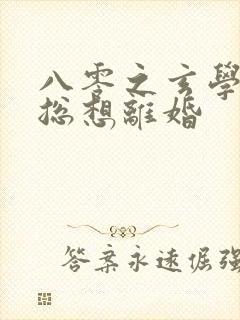 八零之玄學
總想離婚
答案永遠倔强